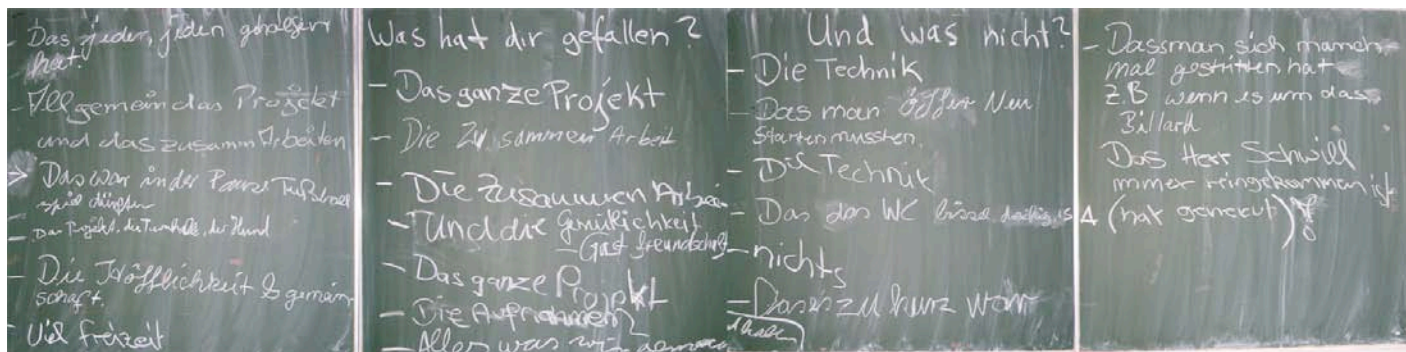 - Das jeder, jeden geholfen
hat.
- Allgemein das Projekt
und das zusamm Arbeiten
Das wir in der Pause Fußball
spiel dürften
- Das Projekt, die Turnhalle, der Hund
- Die Höfflichkeit & gemein
schaft.
- Viel freizeit
Was hat dir gefallen?
- Das ganze Projekt
- Die Zusammen Arbeit
- Die Zusammen Arbei
- Und die Gemütlichkeit
- Gast freundschaft
- Das ganze Projekt
- Die Aufnahmen
- Alles was wir
Und was nicht?
- Die Technik
- Das man öffter Neu
Starten mussten.
- Die Technik
- Das das WC bissel dreckig is
- nichts
- Das is zu kurz war
- Dass man sich manch-
mal gestritten hat
z.B wenn es um das
Billard
Das Herr Schwill
immer reingekommen ist
(hat genervt)